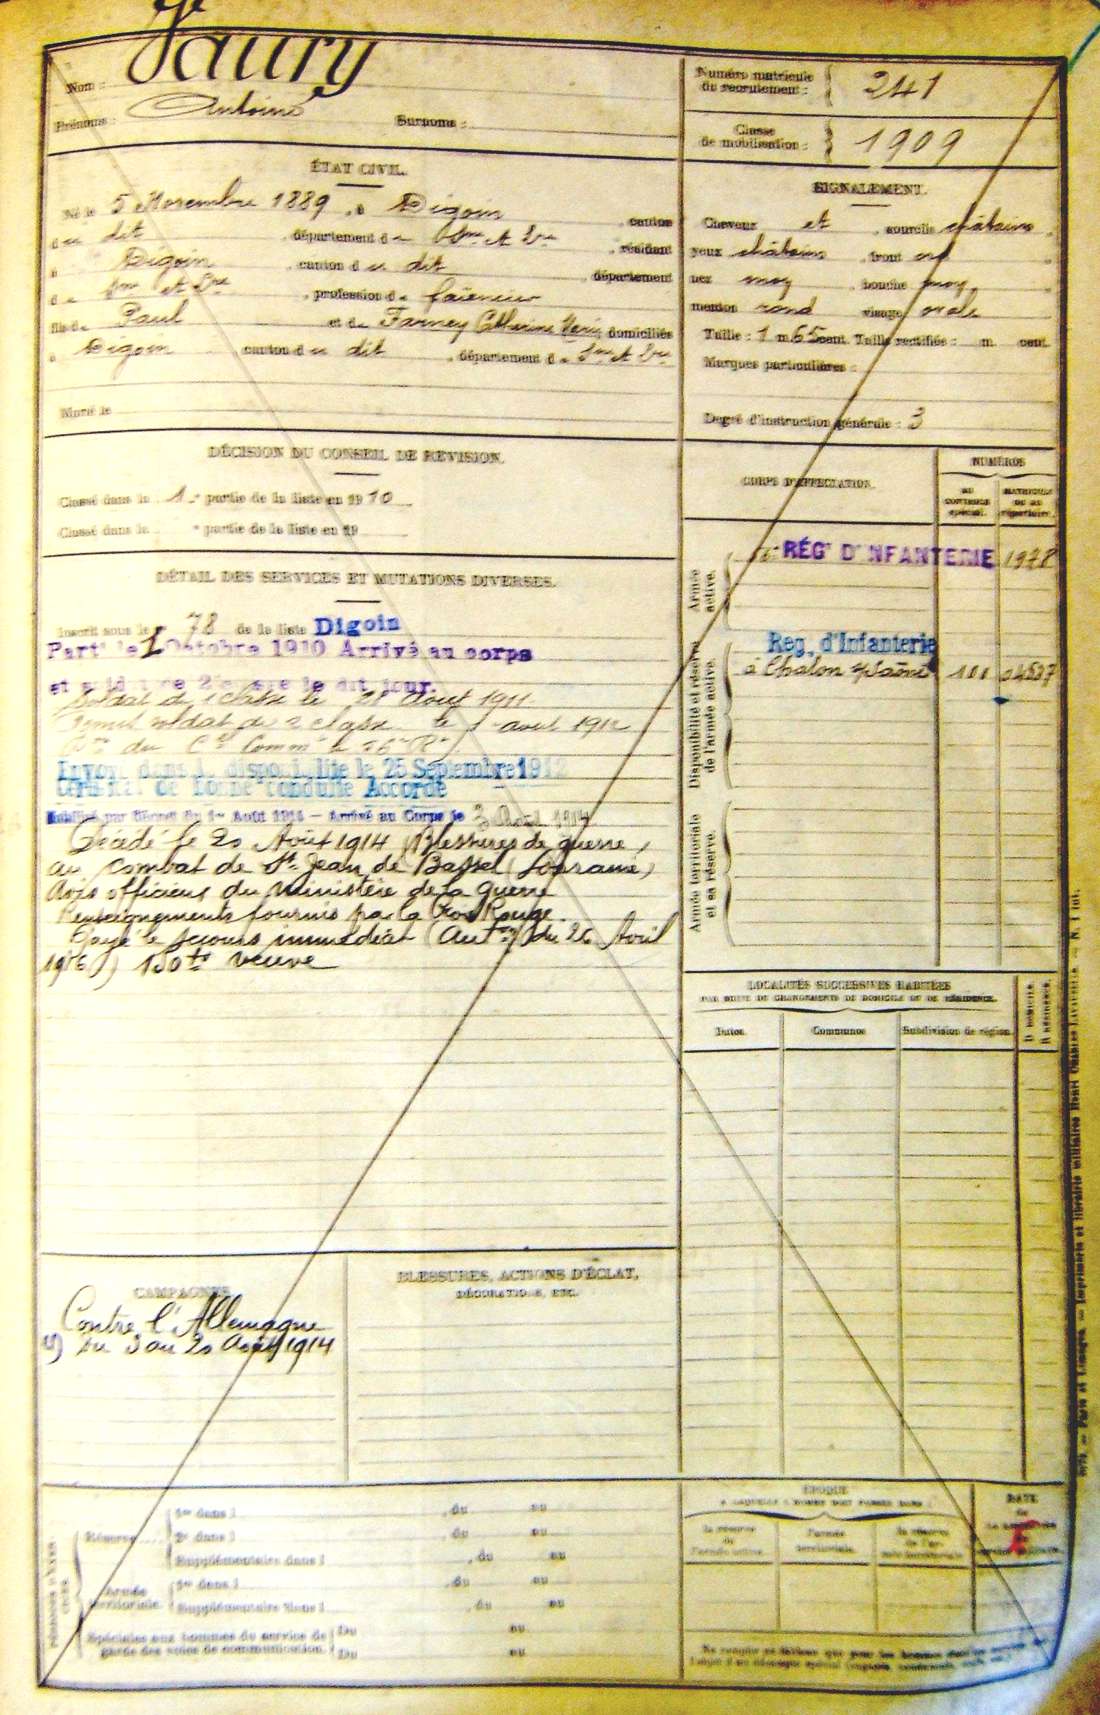 Nom : Jaury
Prénoms : Antoine Surnoms :
Numéro matricule du recrutement : 241
Classe de mobilisation : 1909
ÉTAT CIVIL.
Né le 5 Novembre 1889, à Digoin, canton
du dit, département de Sne et Lre, résidant
à Digoin, canton du dit, département
de Sne et Lre, profession de faïencier
fils de Paul et de Farney Catherine, domiciliés
à Digoin, canton du dit, département de Sne et Lre
Marié le
SIGNALEMENT.
Cheveux et sourcils châtains,
yeux châtains, front ord
nez moy, bouche moy,
menton rond visage ovale
Taille : 1 m. 65 cent. Taille rectifiée : m. cent.
Marques particulières :
Degré d'instruction générale : 3
DÉCISION DU CONSEIL DE RÉVISION.
Classé dans la 1e partie de la liste en 1910
Classé dans la e partie de la liste en 19
CORPS D'AFFECTATION.
NUMÉROS
AU CONTRÔLE spécial.
MATRICULE OU AU répertoire.
Armée active.
56e RÉGt D'INFANTERIE 1978
Disponibilité et réserve de l'armée active.
Reg. d'Infanterie
à Chalon s/Saône
Armée territoriale et sa réserve.
DÉTAIL DES SERVICES ET MUTATIONS DIVERSES.
Inscrit sous le n° 78 de la liste Digoin
Parti le 1 Octobre 1910 Arrivé au corps
et soldat de 2e classe le dit jour.
Soldat de 1 classe le 28 Août 1911
Remis soldat de 2 classe le 1 avril 1912
Envoyé dans la disponibilité le 25 Septembre 1912
Certificat de bonne conduite Accordé
Mobilisé par Décret du 1er Août 1914 — Arrivé au Corps le 3 Août 1914
Décédé le 20 Août 1914 (Blessures de guerre)
au combat de St Jean de Bassel (Lorraine)
Avis officieux du Ministère de la guerre
Renseignements fournis par la Croix Rouge.
Payé le secours immédiat (Autn du 26 Avril
1916) 150 fs veuve
LOCALITÉS SUCCESSIVES HABITÉES
PAR SUITE DE CHANGEMENTS DE DOMICILE OU DE RÉSIDENCE.
Dates.
Communes
Subdivision de région.
D DOMICILE. R RÉSIDENCE.
CAMPAGNES
Contre l'Allemagne
du 3 au 20 Août 1914
BLESSURES, ACTIONS D'ÉCLAT,
DÉCORATIONS, ETC.
Réserve
1re dans l , du au
2e dans l , du au
Supplémentaire dans l , du au
Armée territoriale.
1re dans l , du au
Supplémentaire dans l , du au
Spéciales aux hommes du service de garde des voies de communication.
Du au
Du au
ÉPOQUE
À LAQUELLE L'HOMME DOIT PASSER DANS :
la réserve de l'armée active.
l'armée territoriale.
la réserve de l'armée territoriale
DATE